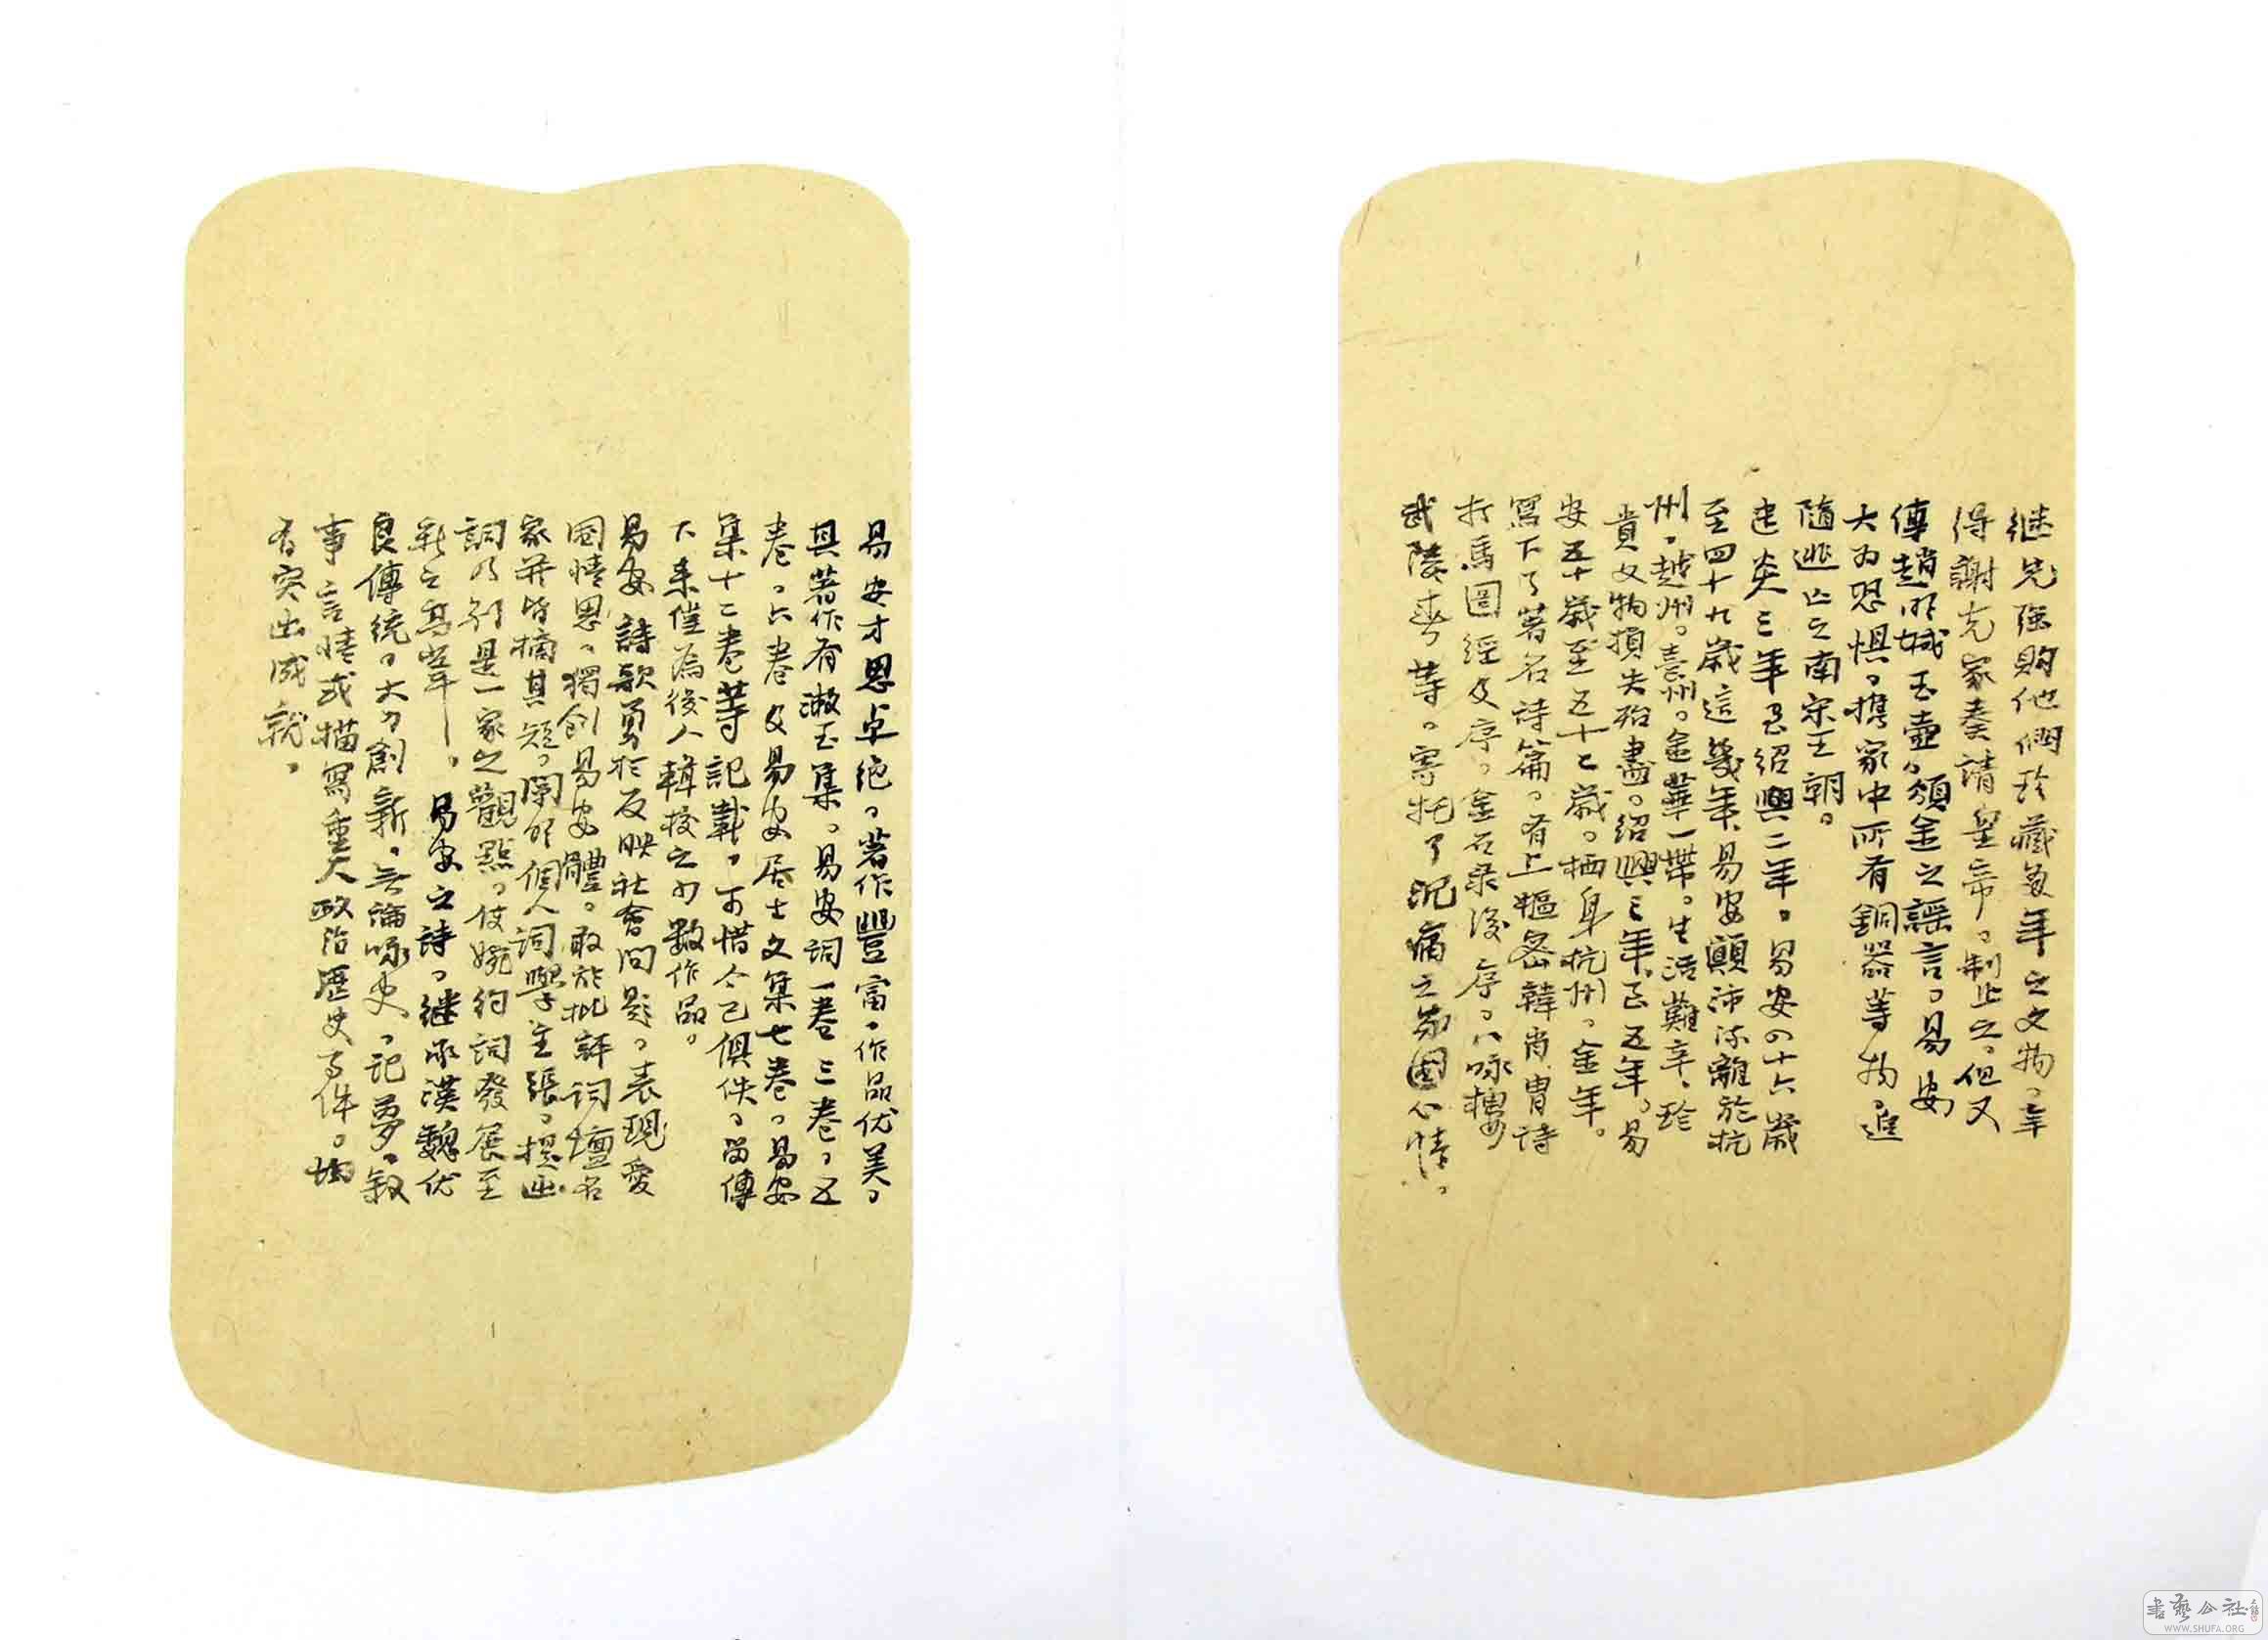 继先强购他們珍藏多年之文物，幸
得謝克家奏請皇帝，制止之，但又
傳趙明誠玉壺，頒金之謡言，易安
大为恐惧，携家中所有銅器等物，追
隨逃亡之南宋王朝。
建炎三年至紹興二年，易安四十六歲
至四十九歲這幾年，易安顛沛流離於杭
州，越州，臺州，金華一帶，生活難辛，珍
貴文物損失殆盡，紹興三年至五年，易
安五十歲至五十二歲，栖身杭州，金華。
寫下了著名詩篇，有上樞密韓肖胄詩
打馬圖經及序，金石录後序，八咏樓
武陵春等，寄托了沉痛之家國心情。
易安才思卓绝，著作豐富，作品优美，
其著作有漱玉集，易安词一卷三卷，五
卷，六卷及易安居士文集七卷，易安
集十二卷等記載，可惜今已俱佚，留傳
下来僅為後人輯校之少數作品。
易安詩歌勇於反映社會问题，表現愛
國情思，獨創易安體，敢於批評词壇名
家并皆摘其短，闡明個人詞學主張，提出
詞乃别是一家之觀點，使婉约詞發展至
新之高峰。易安之詩，继承漢魏优
良傳統，大力創新，无論咏史，記夢，叙
事言情或描寫重大政治歷史事件，均
有突出成就。
書藝公社
WWW.SHUFA.ORG